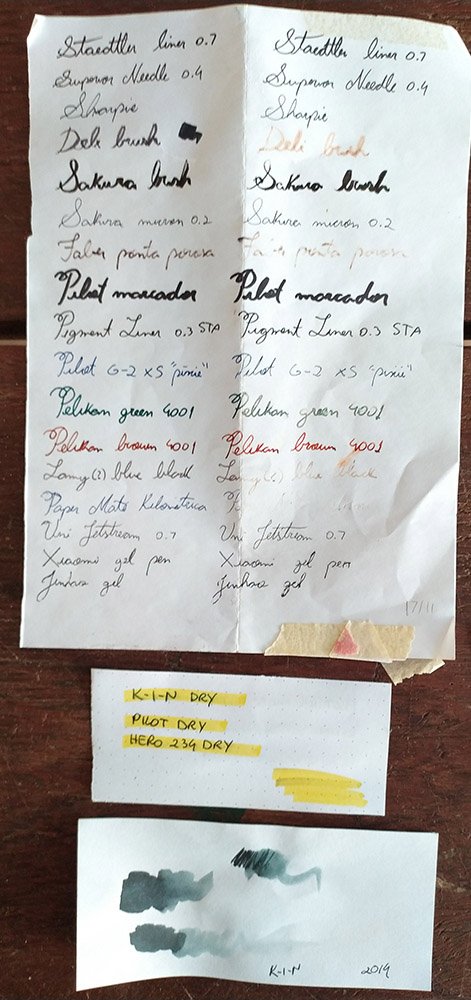 Staedtler liner 0.7
Superior Needle 0.4
Sharpie
Deli brush
Sakura brush
Sakura micron 0.2
Faber ponta porosa
Pilot marcador
Pigment Liner 0.3 STA
Pilot G-2 XS "pixie"
Pelikan green 4001
Pelikan brown 4001
Lamy(?) blue black
Paper Mate Kilometrica
Uni Jetstream 0.7
Xiaomi gel pen
Jinhao gel
Staedtler liner 0.7
Superior Needle 0.4
Sharpie
Deli brush
Sakura brush
Sakura micron 0.2
Faber ponta porosa
Pilot marcador
Pigment Liner 0.3 STA
Pilot G-2 XS "pixie"
Pelikan green 4001
Pelikan brown 4001
Lamy(?) blue black
Uni Jetstream 0.7
Xiaomi gel pen
Jinhao gel
17/11
K-I-N DRY
PILOT DRY
HERO 234 DRY
K-I-N 2019